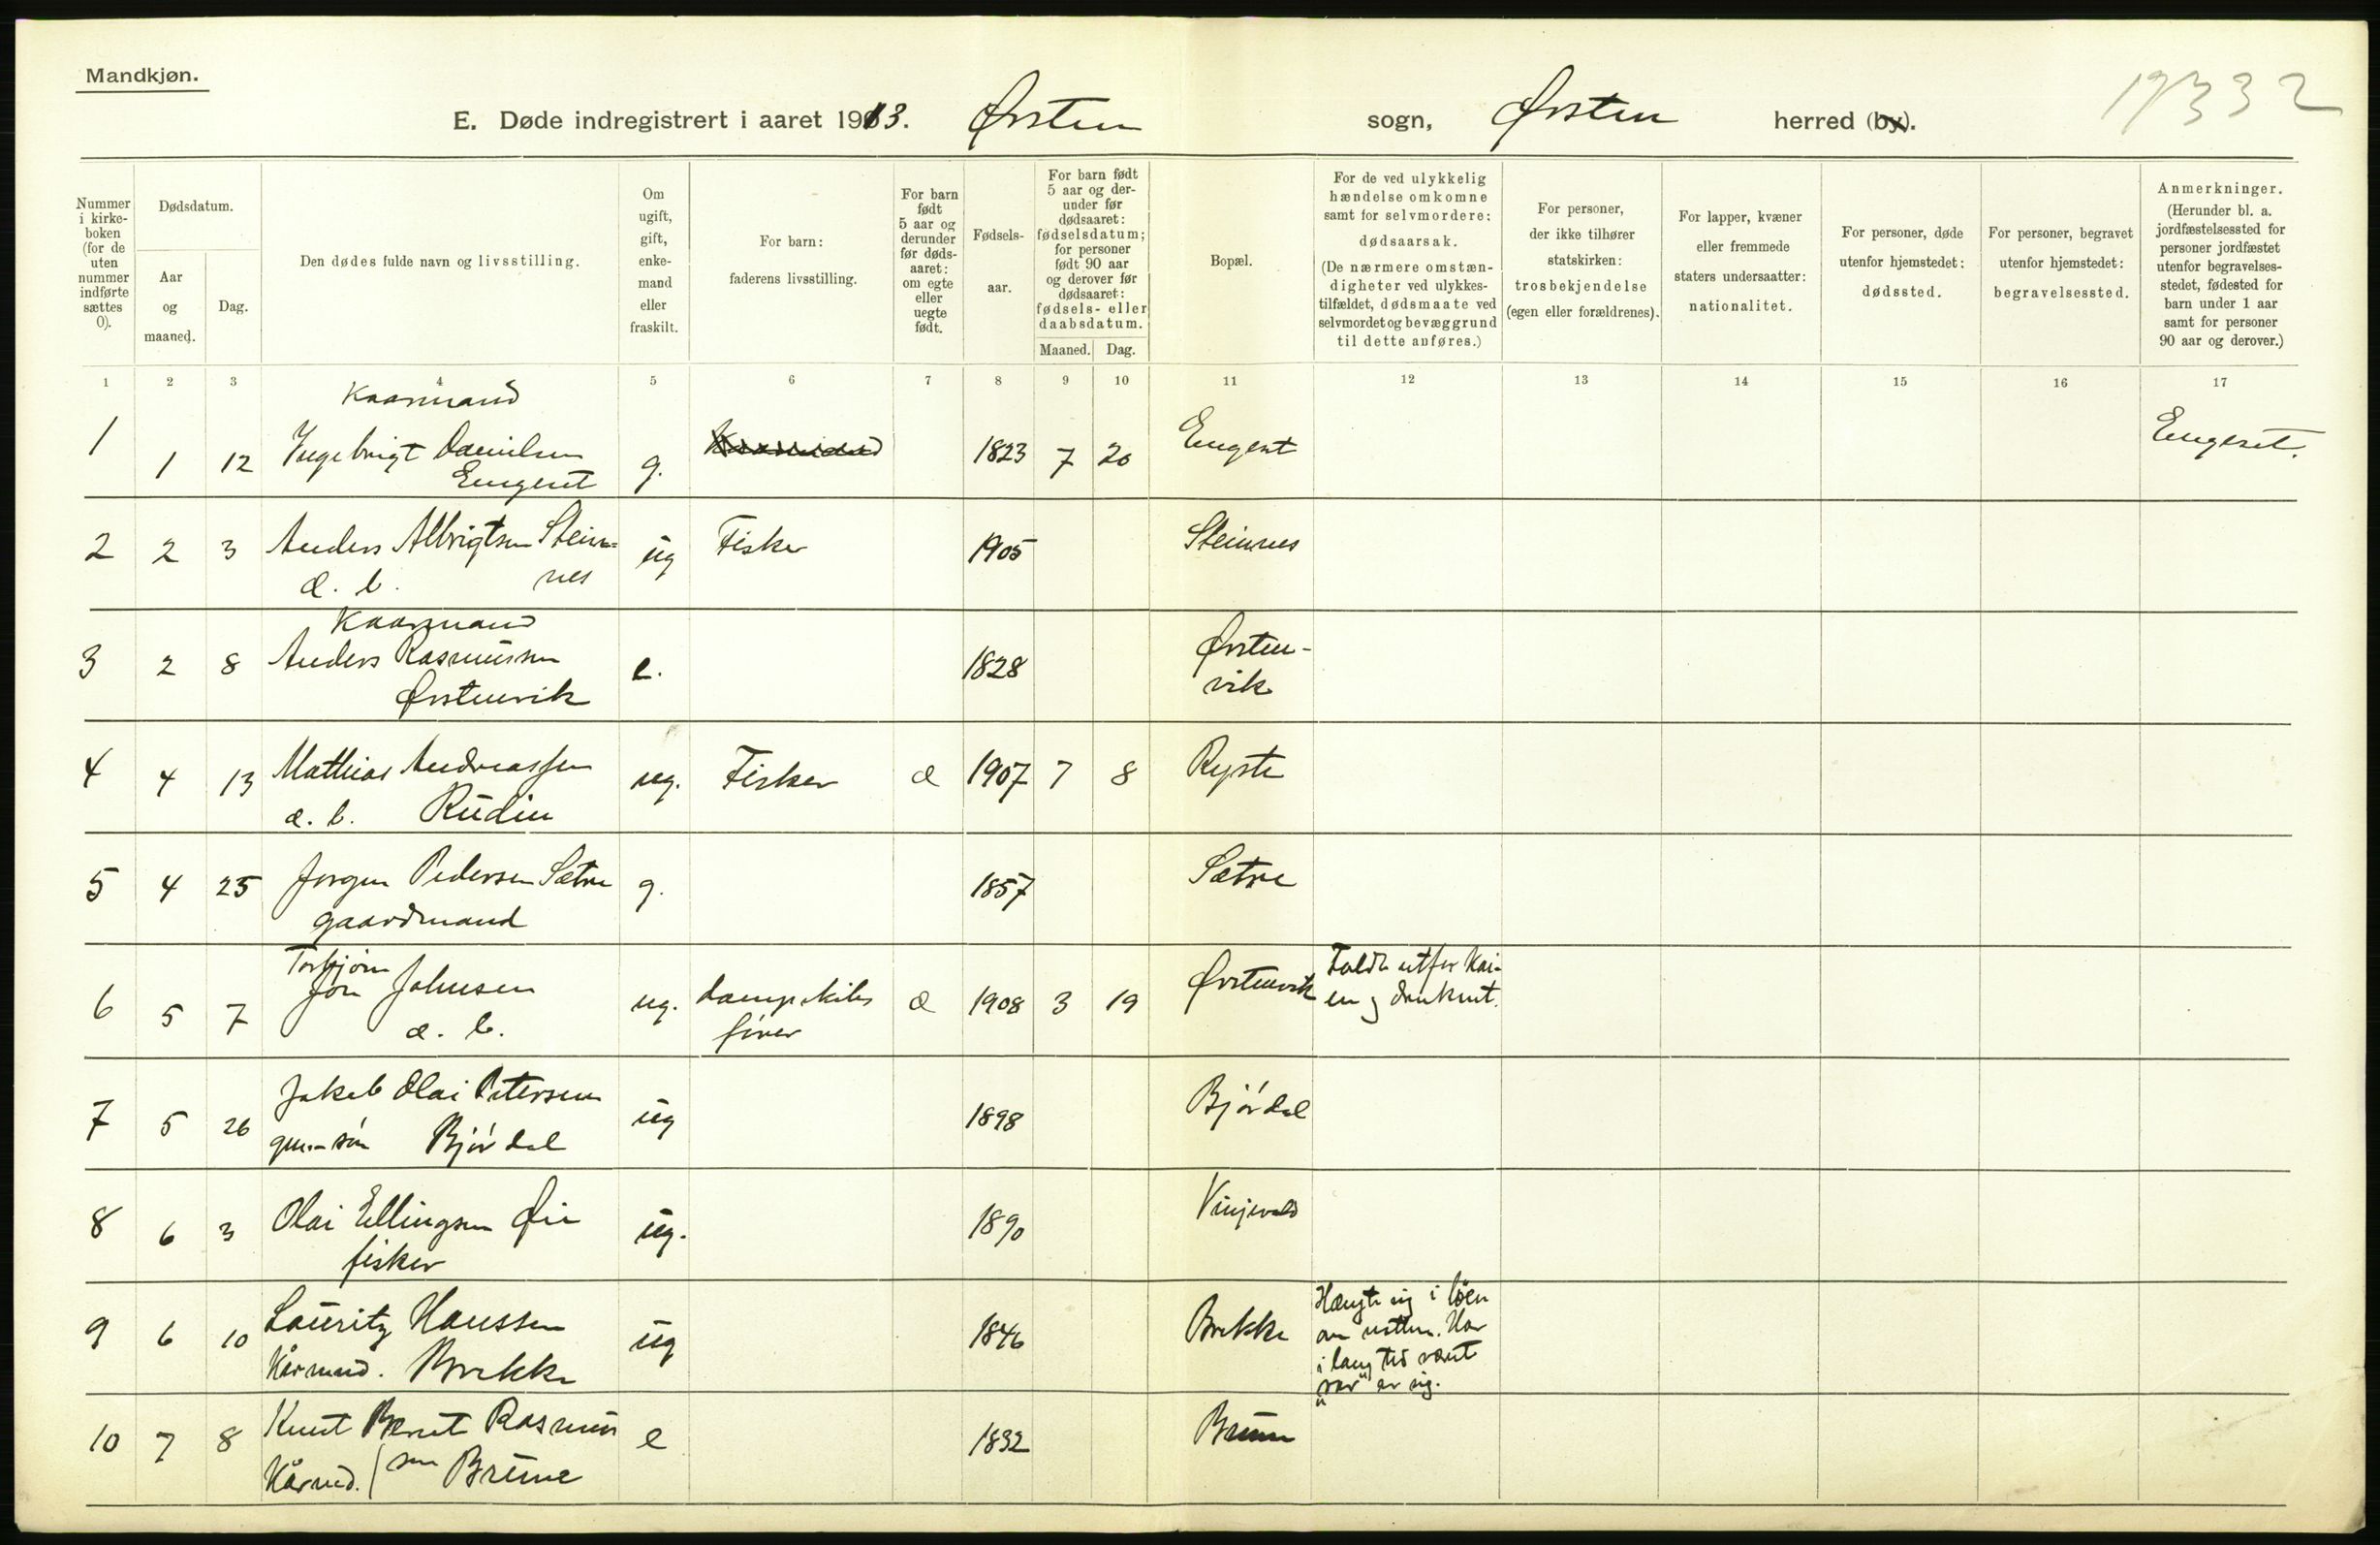 Mandkjøn.
E. Døde indregistrert i aaret 1913. Ørsten sogn, Ørsten herred (by).
17332
Nummer i kirke-boken (for de uten nummer indførte sættes 0).
Dødsdatum.
Aar og maaned.
Dag.
Den dødes fulde navn og livsstilling.
Om ugift, gift, enke-mand eller fraskilt.
For barn: faderens livsstilling.
For barn født 5 aar og derunder før døds-aaret: om egte eller uegte født.
Fødsels-aar.
For barn født 5 aar og der-under før dødsaaret: fødselsdatum; for personer født 90 aar og derover før dødsaaret: fødsels- eller daabsdatum.
Maaned. Dag.
Bopæl.
For de ved ulykkelig hændelse omkomne samt for selvmordere: dødsaarsak. (De nærmere omstæn-digheter ved ulykkes-tilfældet, dødsmaate ved selvmordet og bevæggrund til dette anføres.)
For personer, der ikke tilhører statskirken: trosbekjendelse (egen eller forældrenes).
For lapper, kvæner eller fremmede staters undersaatter: nationalitet.
For personer, døde utenfor hjemstedet: dødssted.
For personer, begravet utenfor hjemstedet: begravelsessted.
Anmerkninger. (Herunder bl. a. jordfæstelsessted for personer jordfæstet utenfor begravelses-stedet, fødested for barn under 1 aar samt for personer 90 aar og derover.)
1 2 3 4 5 6 7 8 9 10 11 12 13 14 15 16 17
Kaarmand
1 1 12 Ingebrigt Danielsen g. 1823 7 20 Engeset Engeset.
Engeset
2 2 3 Anders Albrigtsen Stein= ug Fisker 1905 Steinnes
æ. b. nes
Kaarmand
3 2 8 Anders Rasmussen e. 1828 Ørsten-
Ørstenvik vik
4 4 13 Mathias Andreassen ug. Fisker æ 1907 7 8 Ryste
æ. b. Rudin
5 4 25 Jørgen Pedersen Sætre g. 1857 Sætre
gaardmand
Torbjørn
6 5 7 Jon Johnsen ug. dampskibs æ 1908 3 19 Ørstenvik Faldt utfor Kai-
æ. b. fører en og druknet.
7 5 26 Jakob Olai Petersen ug 1898 Bjørdal
gm.-søn Bjørdal
8 6 3 Olai Ellingsen Øie ug. 1890 Vinjevold
fisker
9 6 10 Lauritz Hanssen ug 1846 Brekke Hængte sig i løen
Kårmand. Brekke om natten. Har
i lang tid været
"rar" av sig.
10 7 8 Knut Bernt Rasmus e 1832 Brune
Kårmd. / sen Brune